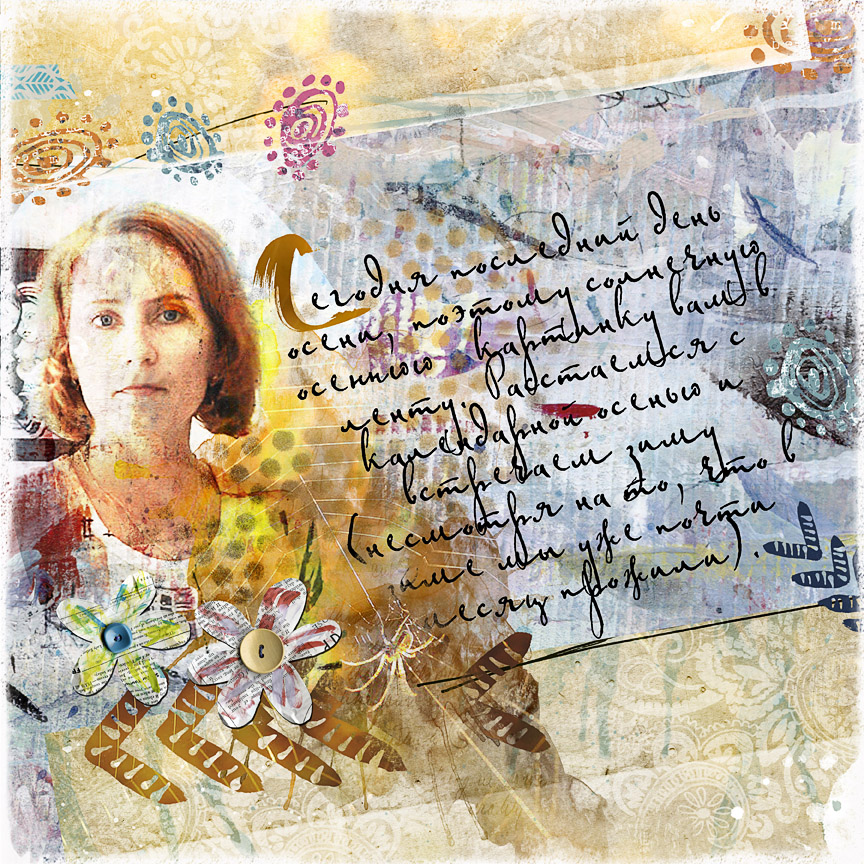 Сегодня последний день
осени, поэтому солнечную
осеннюю картинку вам в
ленту. Расстаемся с
календарной осенью и
встречаем зиму
(несмотря на то, что в
зиме мы уже почти
месяц прожили).